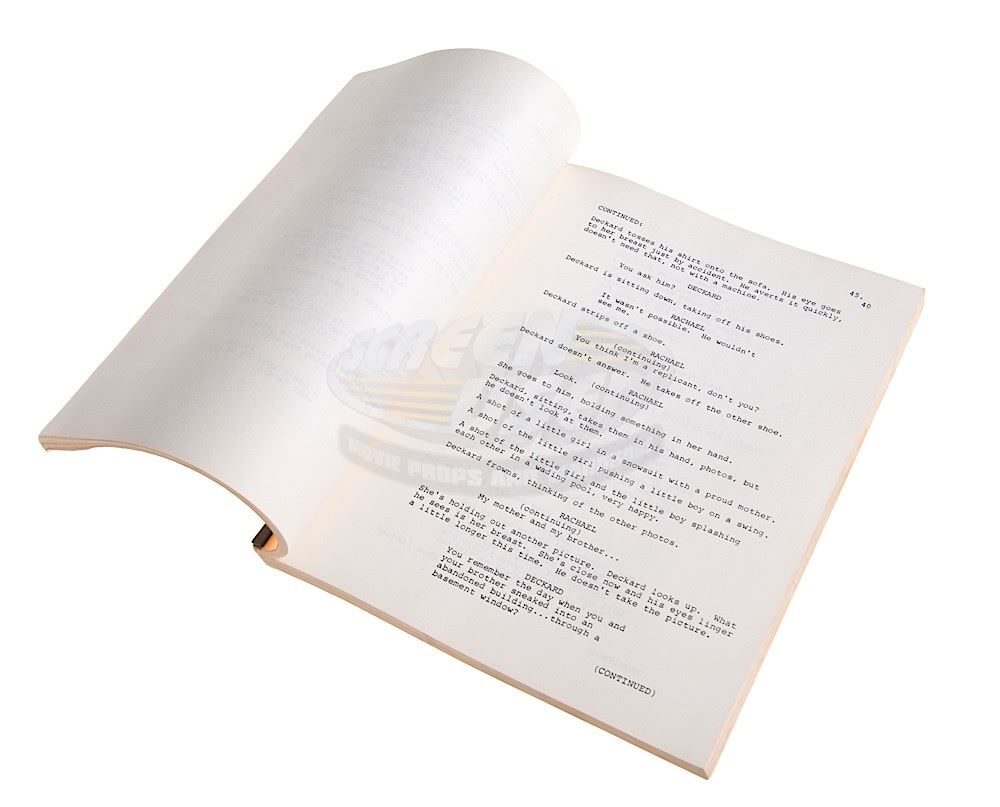 45.
CONTINUED:
40
Deckard tosses his shirt onto the sofa. His eye goes
to her breast just by accident. He averts it quickly,
doesn't need that, not with a machine.
DECKARD
You ask him?
Deckard is sitting down, taking off his shoes.
RACHAEL
It wasn't possible. He wouldn't
see me.
Deckard strips off a shoe.
RACHAEL
(continuing)
You think I'm a replicant, don't you?
Deckard doesn't answer. He takes off the other shoe.
RACHAEL
(continuing)
Look.
She goes to him, holding something in her hand.
Deckard, sitting, takes them in his hand, photos, but
he doesn't look at them.
A shot of a little girl in a snowsuit with a proud mother.
A shot of the little girl pushing a little boy on a swing.
A shot of the little girl and the little boy splashing
each other in a wading pool, very happy.
Deckard frowns, thinking of the other photos.
RACHAEL
(continuing)
My mother and my brother...
She's holding out another picture. Deckard looks up. What
he sees is her breast. She's close now and his eyes linger
a little longer this time. He doesn't take the picture.
DECKARD
You remember the day when you and
your brother sneaked into an
abandoned building...through a
basement window?
(CONTINUED)
MOVIE PROPS AND